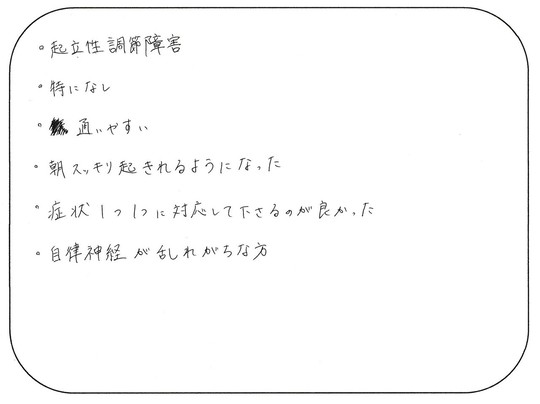 。起立性調節障害
。特になし
。通いやすい
。朝スッキリ起きれるようになった
。症状1つ1つに対応して下さるのが良かった
。自律神経が乱れがちな方